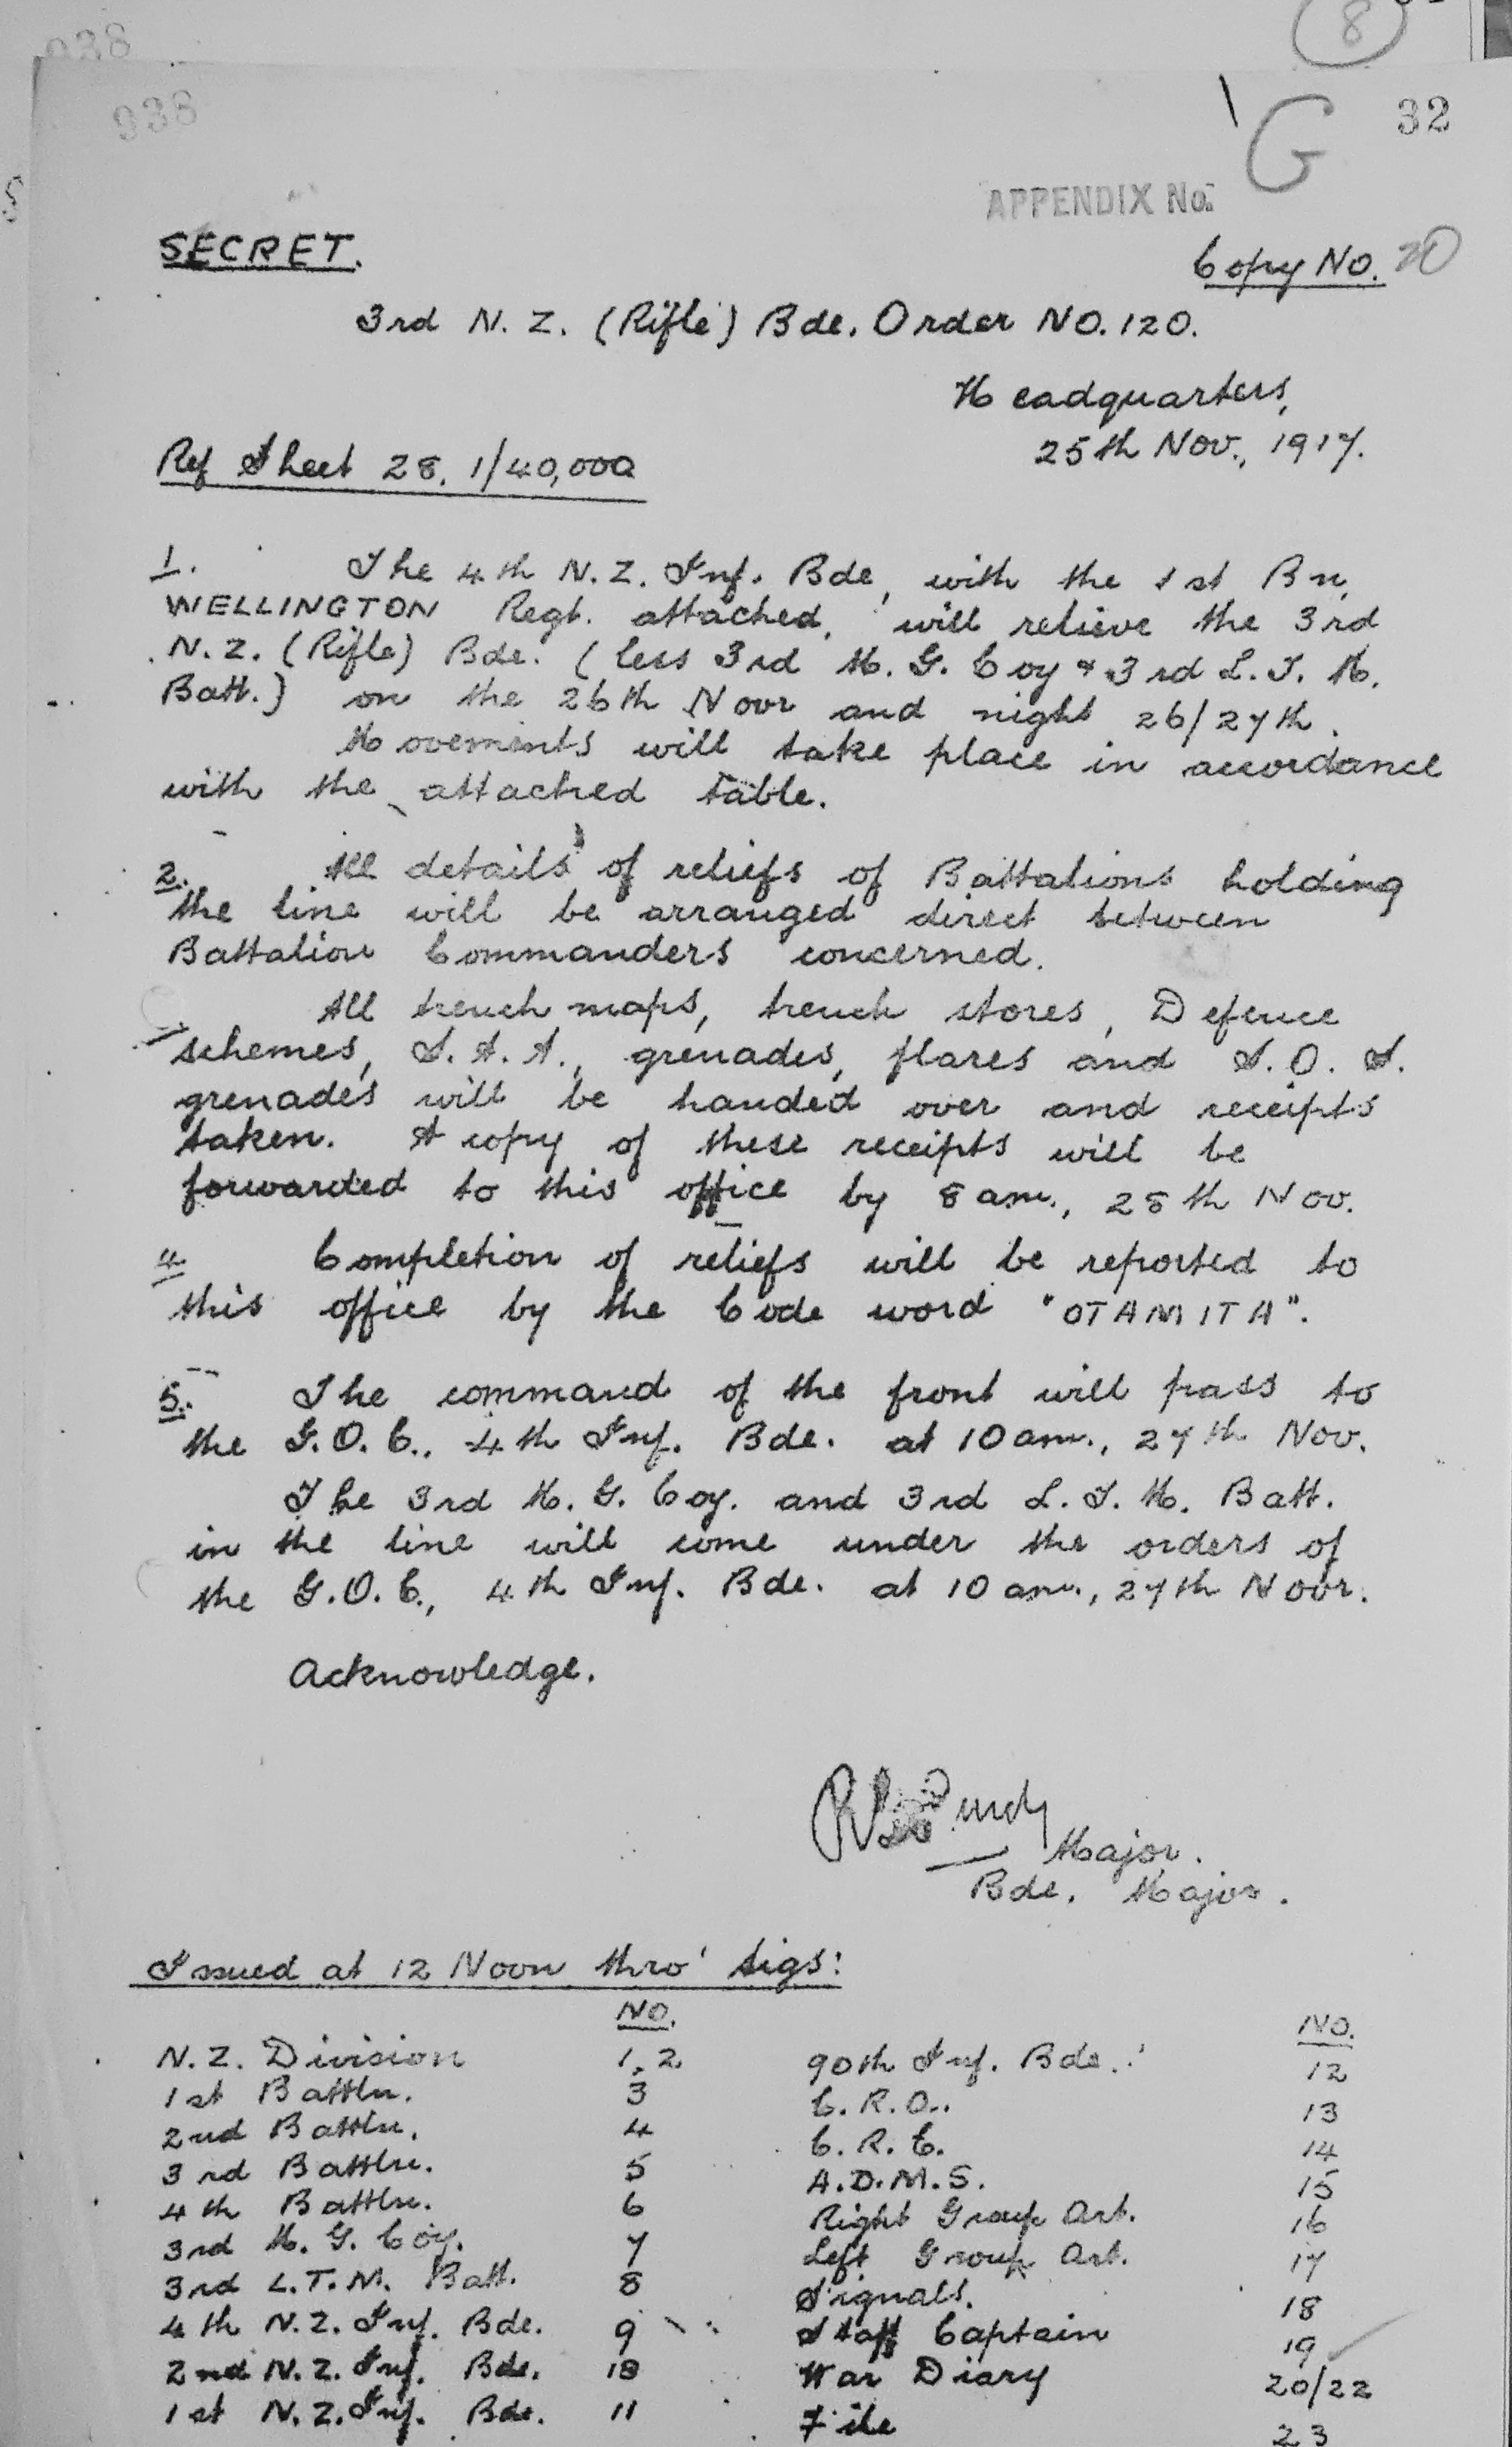 8
938
938
G 32
APPENDIX No.
SECRET.
Copy No. 20
3rd N. Z. (Rifle) Bde. Order NO. 120.
Headquarters,
25th Nov., 1917.
Ref Sheet 28. 1/40,000
1. The 4th N. Z. Inf. Bde, with the 1st Bn,
WELLINGTON Regt. attached, will relieve the 3rd
N. Z. (Rifle) Bde. (less 3rd M. G. Coy & 3rd L. T. M.
Batt.) on the 26th Novr and night 26/27th.
Movements will take place in accordance
with the attached table.
2. All details of reliefs of Battalions holding
the line will be arranged direct between
Battalion Commanders concerned.
All trench maps, trench stores, Defence
schemes, S. A. A., grenades, flares and S. O. S.
grenades will be handed over and receipts
taken. A copy of these receipts will be
forwarded to this office by 8 am., 28th Nov.
4. Completion of reliefs will be reported to
this office by the Code word "OTAMITA".
5. The command of the front will pass to
the G. O. C., 4th Inf. Bde. at 10 am., 27th Nov.
The 3rd M. G. Coy. and 3rd L. T. M. Batt.
in the line will come under the orders of
the G. O. C., 4th Inf. Bde. at 10 am., 27th Novr.
Acknowledge.
Major.
Bde. Major.
Issued at 12 Noon thro' Sigs:
NO. NO.
N. Z. Division 1, 2 90th Inf. Bde. 12
1st Battln. 3 C. R. A. 13
2nd Battln. 4 C. R. E. 14
3rd Battln. 5 A. D. M. S. 15
4th Battln. 6 Right Group Art. 16
3rd M. G. Coy. 7 Left Group Art. 17
3rd L. T. M. Batt. 8 Signals. 18
4th N. Z. Inf. Bde. 9 Staff Captain 19
2nd N. Z. Inf. Bde. 10 War Diary 20/22
1st N. Z. Inf. Bde. 11 File 23